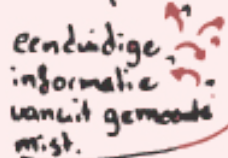 eenduidige
informatie
vanuit gemeente
mist.